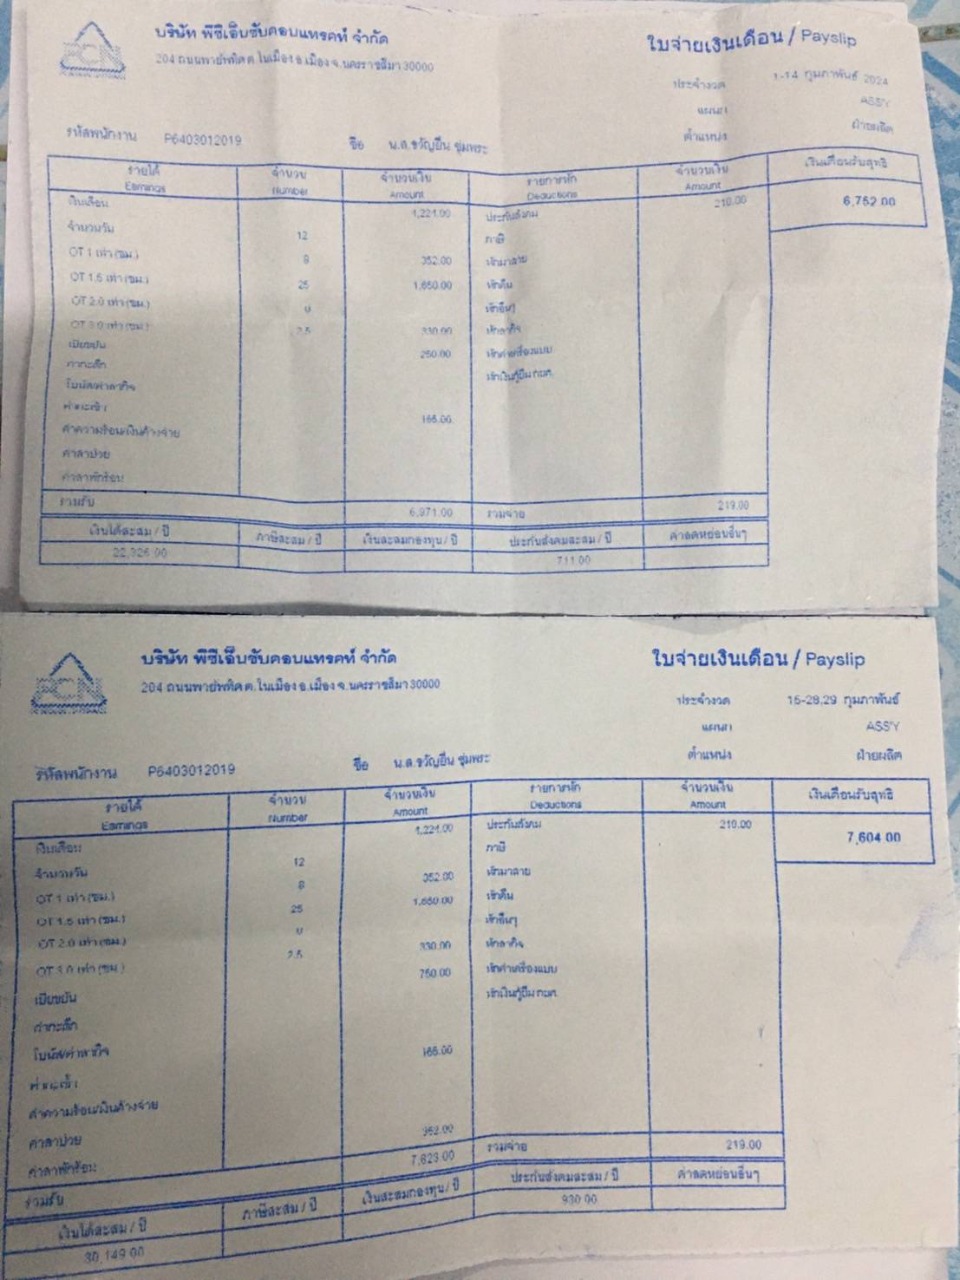 PCN
บริษัท พีซีเอ็นซับคอนแทรคท์ จำกัด
ใบจ่ายเงินเดือน / Payslip
204 ถนนพายัพทิศ ต.ในเมือง อ.เมือง จ.นครราชสีมา 30000
ประจำงวด 1-14 กุมภาพันธ์ 2024
แผนก ASS'Y
ตำแหน่ง ฝ่ายผลิต
รหัสพนักงาน P6403012019 ชื่อ น.ส.ขวัญยืน ชุ่มพระ
รายได้ จำนวน จำนวนเงิน รายการหัก จำนวนเงิน เงินเดือนรับสุทธิ
Earnings Number Amount Deductions Amount
เงินเดือน 4,224.00 ประกันสังคม 219.00 6,752.00
จำนวนวัน 12 ภาษี
OT 1 เท่า (ชม.) 8 352.00 หักมาสาย
OT 1.5 เท่า (ชม.) 25 1,650.00 หักคืน
OT 2.0 เท่า (ชม.) 0 หักอื่นๆ
OT 3.0 เท่า (ชม.) 2.5 330.00 หักลากิจ
เบี้ยขยัน 250.00 หักค่าเครื่องแบบ
ค่ากะดึก หักเงินกู้ยืม กยศ.
โบนัส/ค่าลากิจ
ค่ากะเช้า
ค่าความร้อน/เงินค้างจ่าย 165.00
ค่าลาป่วย
ค่าลาพักร้อน
รวมรับ 6,971.00 รวมจ่าย 219.00
เงินได้สะสม / ปี ภาษีสะสม / ปี เงินสะสมกองทุน / ปี ประกันสังคมสะสม / ปี ค่าลดหย่อนอื่นๆ
22,326.00 711.00
PCN
บริษัท พีซีเอ็นซับคอนแทรคท์ จำกัด
ใบจ่ายเงินเดือน / Payslip
204 ถนนพายัพทิศ ต.ในเมือง อ.เมือง จ.นครราชสีมา 30000
ประจำงวด 15-28,29 กุมภาพันธ์
แผนก ASS'Y
ตำแหน่ง ฝ่ายผลิต
รหัสพนักงาน P6403012019 ชื่อ น.ส.ขวัญยืน ชุ่มพระ
รายได้ จำนวน จำนวนเงิน รายการหัก จำนวนเงิน เงินเดือนรับสุทธิ
Earnings Number Amount Deductions Amount
เงินเดือน 4,224.00 ประกันสังคม 219.00 7,604.00
จำนวนวัน 12 ภาษี
OT 1 เท่า (ชม.) 8 352.00 หักมาสาย
OT 1.5 เท่า (ชม.) 25 1,650.00 หักคืน
OT 2.0 เท่า (ชม.) 0 หักอื่นๆ
OT 3.0 เท่า (ชม.) 2.5 330.00 หักลากิจ
เบี้ยขยัน 750.00 หักค่าเครื่องแบบ
ค่ากะดึก หักเงินกู้ยืม กยศ.
โบนัส/ค่าลากิจ
ค่ากะเช้า 165.00
ค่าความร้อน/เงินค้างจ่าย
ค่าลาป่วย
ค่าลาพักร้อน 352.00
รวมรับ 7,823.00 รวมจ่าย 219.00
เงินได้สะสม / ปี ภาษีสะสม / ปี เงินสะสมกองทุน / ปี ประกันสังคมสะสม / ปี ค่าลดหย่อนอื่นๆ
30,149.00 930.00